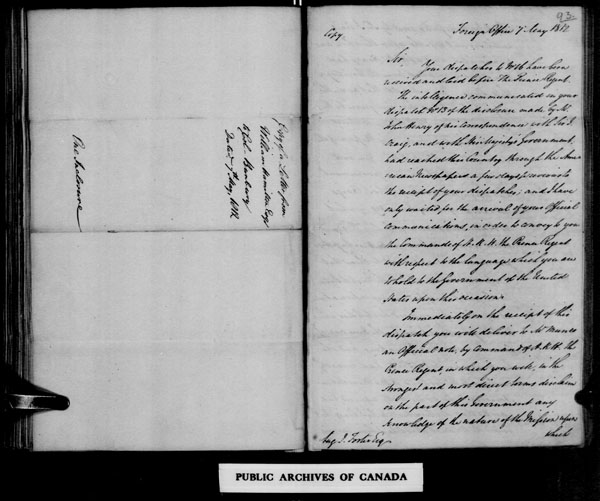 Copy of a Letter from
William Hamilton Esq
to Col. Bunbury
Dated 7 May, 1812
One Inclosure
93
Copy.
Foreign Office 7 May 1812
Sir,
Your dispatches to No 16 have been
received and laid before The Prince Regent.
The intelligence communicated in your
dispatch No 13 of the disclosure made by Mr
John Henry of his Correspondence with Sir J.
Craig, and with His Majesty's Government,
had reached this Country through the Ame
rican Newspapers a few days previous to
the receipt of your dispatches; and I have
only waited for the arrival of your Official
Communications, in order to convey to you
the Commands of H.R.H. the Prince Regent
with respect to the language which you are
to hold to the Government of the United
States upon this occasion.
Immediately on the receipt of this
dispatch you will deliver to Mr Munro
an Official note, by Command of H.R.H. the
Prince Regent, in which you will, in the
strongest and most direct terms disclaim
on the part of this Government any
knowledge of the nature of the Mission upon
which
Aug. J. Foster Esq.
PUBLIC ARCHIVES OF CANADA